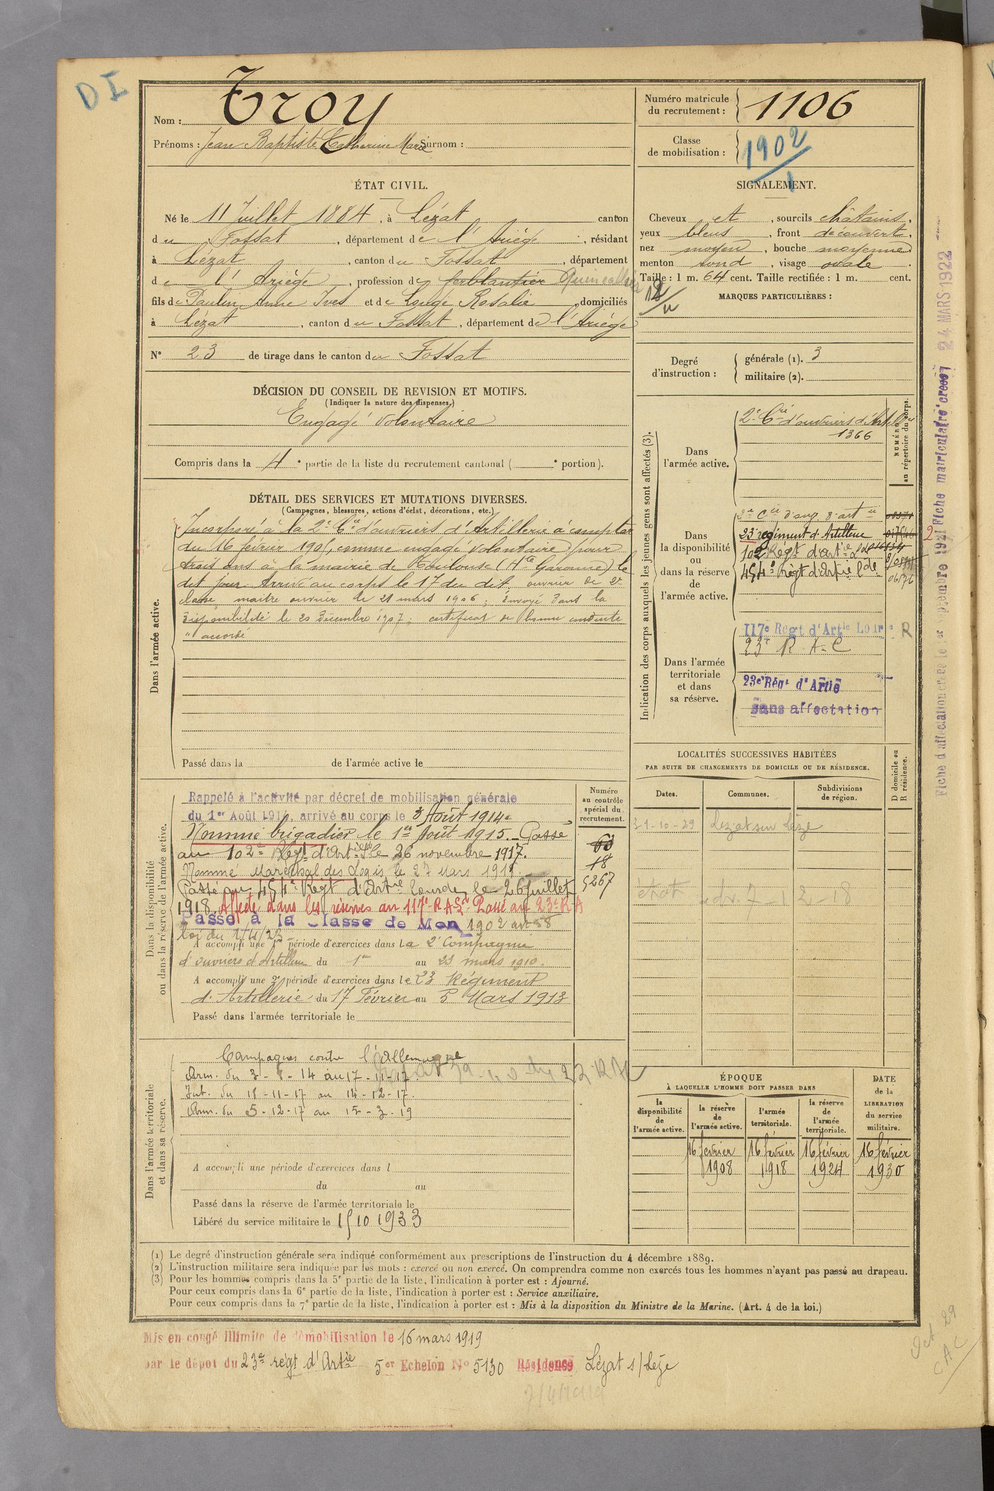 DI
Nom : Troy
Prénoms : Jean Baptiste Catherine Marie Surnom :
Numéro matricule du recrutement : 1106
Classe de mobilisation : 1902
ÉTAT CIVIL.
Né le 11 Juillet 1884, à Lézat canton
du Fossat, département de l'Ariège, résidant
à Lézat, canton du Fossat, département
de l'Ariège, profession de ferblantier Quincaillier
fils de Paulin Anne Yves et de Rosalie domiciliés
à Lézat, canton du Fossat, département de l'Ariège
N° 23 de tirage dans le canton du Fossat
SIGNALEMENT.
Cheveux et, sourcils châtains,
yeux bleus, front découvert,
nez moyen, bouche moyenne
menton rond, visage ovale
Taille : 1 m. 64 cent. Taille rectifiée : 1 m. cent.
MARQUES PARTICULIÈRES :
Degré d'instruction : générale (1). 3
militaire (2).
DÉCISION DU CONSEIL DE REVISION ET MOTIFS.
(Indiquer la nature des dispenses.)
Engagé volontaire
Compris dans la 4e partie de la liste du recrutement cantonal ( e portion).
DÉTAIL DES SERVICES ET MUTATIONS DIVERSES.
(Campagnes, blessures, actions d'éclat, décorations, etc.)
Dans l'armée active.
Incorporé à la 2e Cie d'ouvriers d'Artillerie à compter
du 16 février 1905, comme engagé volontaire pour
trois ans à la mairie de Toulouse (Hte Garonne) le
dit jour. Arrivé au corps le 17 du dit, ouvrier de 2e
classe, maitre ouvrier le 21 mars 1906; envoyé dans la
disponibilité le 20 décembre 1907; certificat de bonne conduite
"accordé"
Passé dans la de l'armée active le
Indication des corps auxquels les jeunes gens sont affectés (3).
NUMÉRO au répertoire du corps.
Dans l'armée active.
2e Cie d'ouvriers d'Artillerie
1366
Dans la disponibilité ou dans la réserve de l'armée active.
23e régiment d'Artillerie
102e Régt d'artie
454e Régt d'Artie Lde
Dans l'armée territoriale et dans sa réserve.
117e Régt d'Artie Lourde R
23e R A C
23e Régt d'Artie
Sans affectation
Fiche matriculaire 24 MARS 1922
LOCALITÉS SUCCESSIVES HABITÉES
PAR SUITE DE CHANGEMENTS DE DOMICILE OU DE RÉSIDENCE.
Dates.
Communes.
Subdivisions de région.
D domicile ou R résidence.
21-10-29 Lezat sur Lèze
Dans la disponibilité ou dans la réserve de l'armée active.
Numéro au contrôle spécial du recrutement.
Rappelé à l'activité par décret de mobilisation générale
du 1er Août 1914, arrivé au corps le 3 Août 1914.
Nommé brigadier le 1er Août 1915. Passé
au 102e Régt d'Artillerie le 26 novembre 1917.
Nommé Maréchal des Logis le 27 mars 1918.
Passé au 454e Régt d'Artie lourde le 26 juillet
1918. Affecté dans les réserves au 117e R.A. Passé au 23e R A
Passé à la Classe de Mon 1902 art 58
loi du 1/4/23
68
18
5267
A accompli une 1e période d'exercices dans la 2e Compagnie
d'ouvriers d'Artillerie du 1er au 23 mars 1910.
A accompli une 2e période d'exercices dans le 23 Régiment
d'Artillerie du 17 Février au 5 Mars 1913
Passé dans l'armée territoriale le
Dans l'armée territoriale et dans sa réserve.
Campagnes contre l'Allemagne
Arm. du 3-8-14 au 17-11-17
Int. du 18-11-17 au 14-12-17.
Arm. du 15-12-17 au 15-3-19
A accompli une période d'exercices dans l
du au
Passé dans la réserve de l'armée territoriale le
Libéré du service militaire le 15 10 1933
ÉPOQUE
À LAQUELLE L'HOMME DOIT PASSER DANS
la disponibilité de l'armée active.
la réserve de l'armée active.
l'armée territoriale.
la réserve de l'armée territoriale.
DATE de la LIBERATION du service militaire.
16 février 1908
16 février 1918
16 février 1924
16 février 1930
(1) Le degré d'instruction générale sera indiqué conformément aux prescriptions de l'instruction du 4 décembre 1889.
(2) L'instruction militaire sera indiquée par les mots : exercé ou non exercé. On comprendra comme non exercés tous les hommes n'ayant pas passé au drapeau.
(3) Pour les hommes compris dans la 5e partie de la liste, l'indication à porter est : Ajourné.
Pour ceux compris dans la 6e partie de la liste, l'indication à porter est : Service auxiliaire.
Pour ceux compris dans la 7e partie de la liste, l'indication à porter est : Mis à la disposition du Ministre de la Marine. (Art. 4 de la loi.)
Mis en congé illimité de démobilisation le 16 mars 1919
par le dépôt du 23e régt d'Artie 5er Echelon N° 5130 Résidence Lézat s/Lèze
Oct 29
CAC